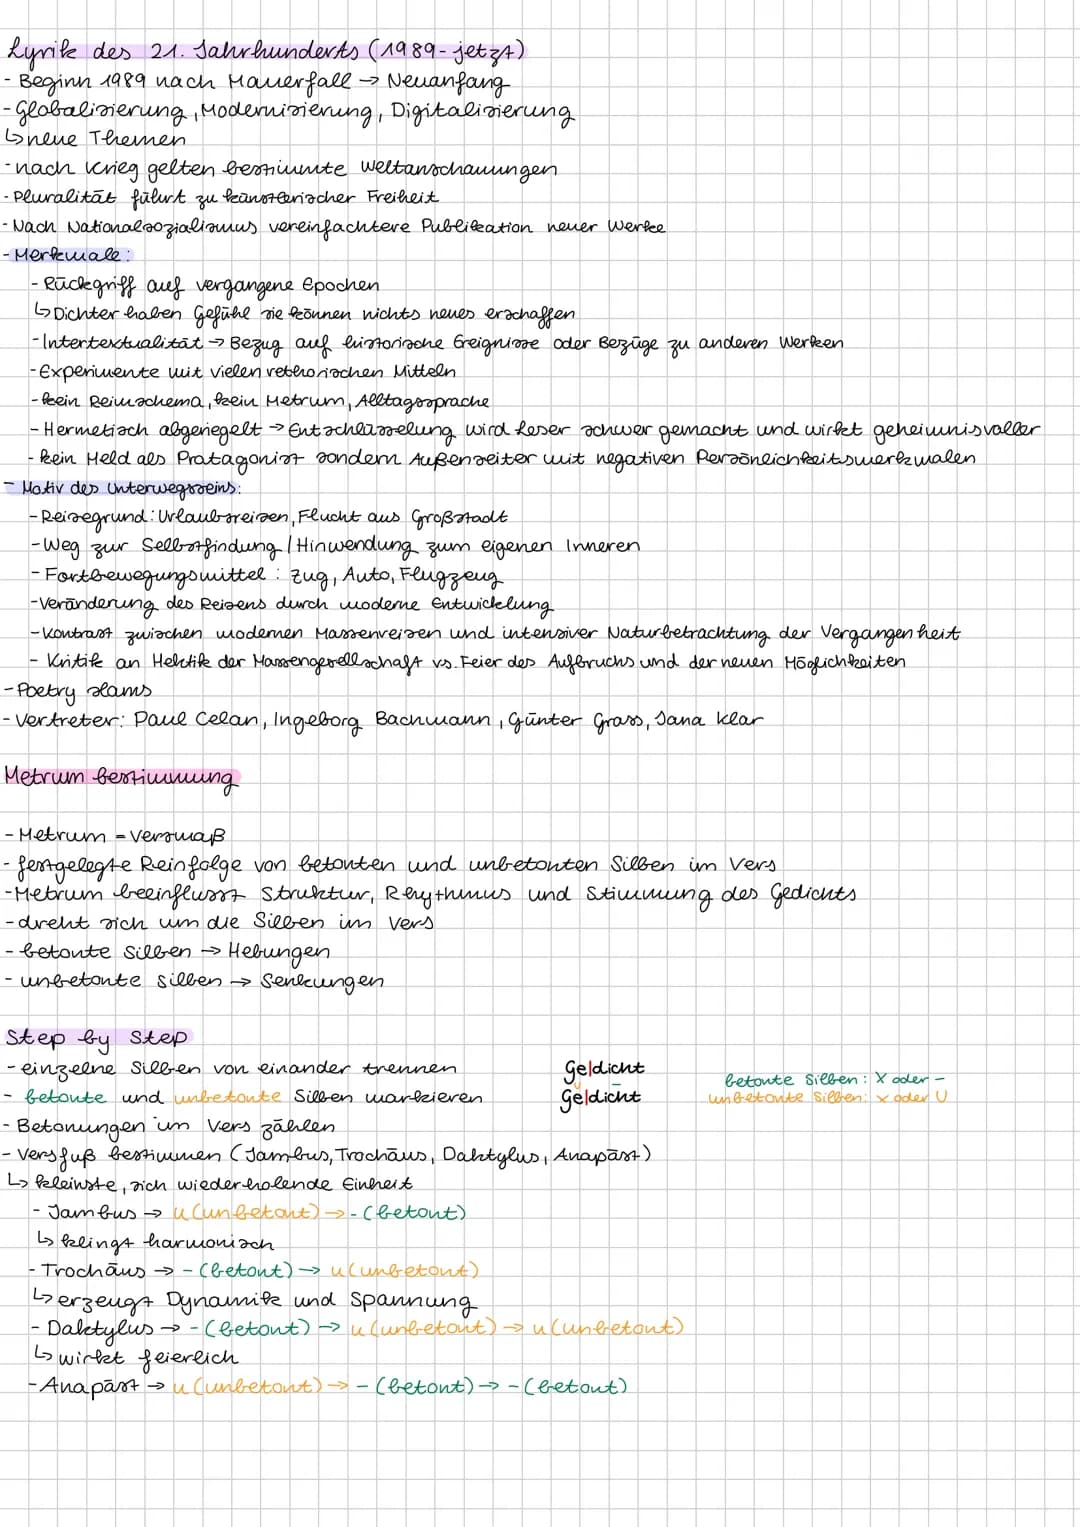 Lyrik des 21. Jahrhunderts (1989-jetzt)
- Beginn 1989 nach Mauerfall → Neuanfang
- Globalisierung, Modernisierung, Digitalisierung
↳ neue Themen
- nach Krieg gelten bestimmte Weltanschauungen
- Pluralität führt zu künstlerischer Freiheit
- Nach Nationalsozialismus vereinfachtere Publikation neuer Werke
- Merkmale:
- Rückgriff auf vergangene Epochen
↳ Dichter haben Gefühl sie können nichts neues erschaffen
- Intertextualität → Bezug auf historische Ereignisse oder Bezüge zu anderen Werken
- Experimente mit vielen rethorischen Mitteln
- kein Reimschema, kein Metrum, Alltagssprache
- Hermetisch abgeriegelt → Entschlüsselung wird Leser schwer gemacht und wirkt geheimnisvoller
- kein Held als Protagonist sondern Außenseiter mit negativen Persönlichkeitsmerkmalen
- Motiv des Unterwegsseins:
- Reisegrund: Urlaubsreisen, Flucht aus Großstadt
- Weg zur Selbstfindung / Hinwendung zum eigenen Inneren
- Fortbewegungsmittel: Zug, Auto, Flugzeug
- Veränderung des Reisens durch moderne Entwicklung
- Kontrast zwischen modernen Massenreisen und intensiver Naturbetrachtung der Vergangenheit
- Kritik an Hektik der Massengesellschaft vs. Feier des Aufbruchs und der neuen Möglichkeiten
- Poetry slams
- Vertreter: Paul Celan, Ingeborg Bachmann, Günter Grass, Jana Klar
Metrum bestimmung
- Metrum = Versmaß
- festgelegte Reinfolge von betonten und unbetonten Silben im Vers
- Metrum beeinflusst Struktur, Rhythmus und Stimmung des Gedichts
- dreht sich um die Silben im Vers
- betonte Silben → Hebungen
- unbetonte Silben → Senkungen
Step by Step
- einzelne Silben von einander trennen Ge|dicht
- betonte und unbetonte Silben markieren Ge|dicht
betonte Silben: X oder -
unbetonte Silben: x oder U
- Betonungen im Vers zählen
- Versfuß bestimmen (Jambus, Trochäus, Daktylus, Anapäst)
↳ kleinste, sich wiederholende Einheit
- Jambus → u (unbetont) → - (betont)
↳ klingt harmonisch
- Trochäus → - (betont) → u (unbetont)
↳ erzeugt Dynamik und Spannung
- Daktylus → - (betont) → u (unbetont) → u (unbetont)
↳ wirkt feierlich
- Anapäst → u (unbetont) → - (betont) → - (betont)